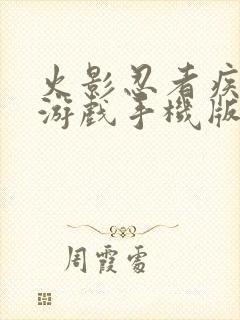 火影忍者疾
游戏手機版
周霞雷